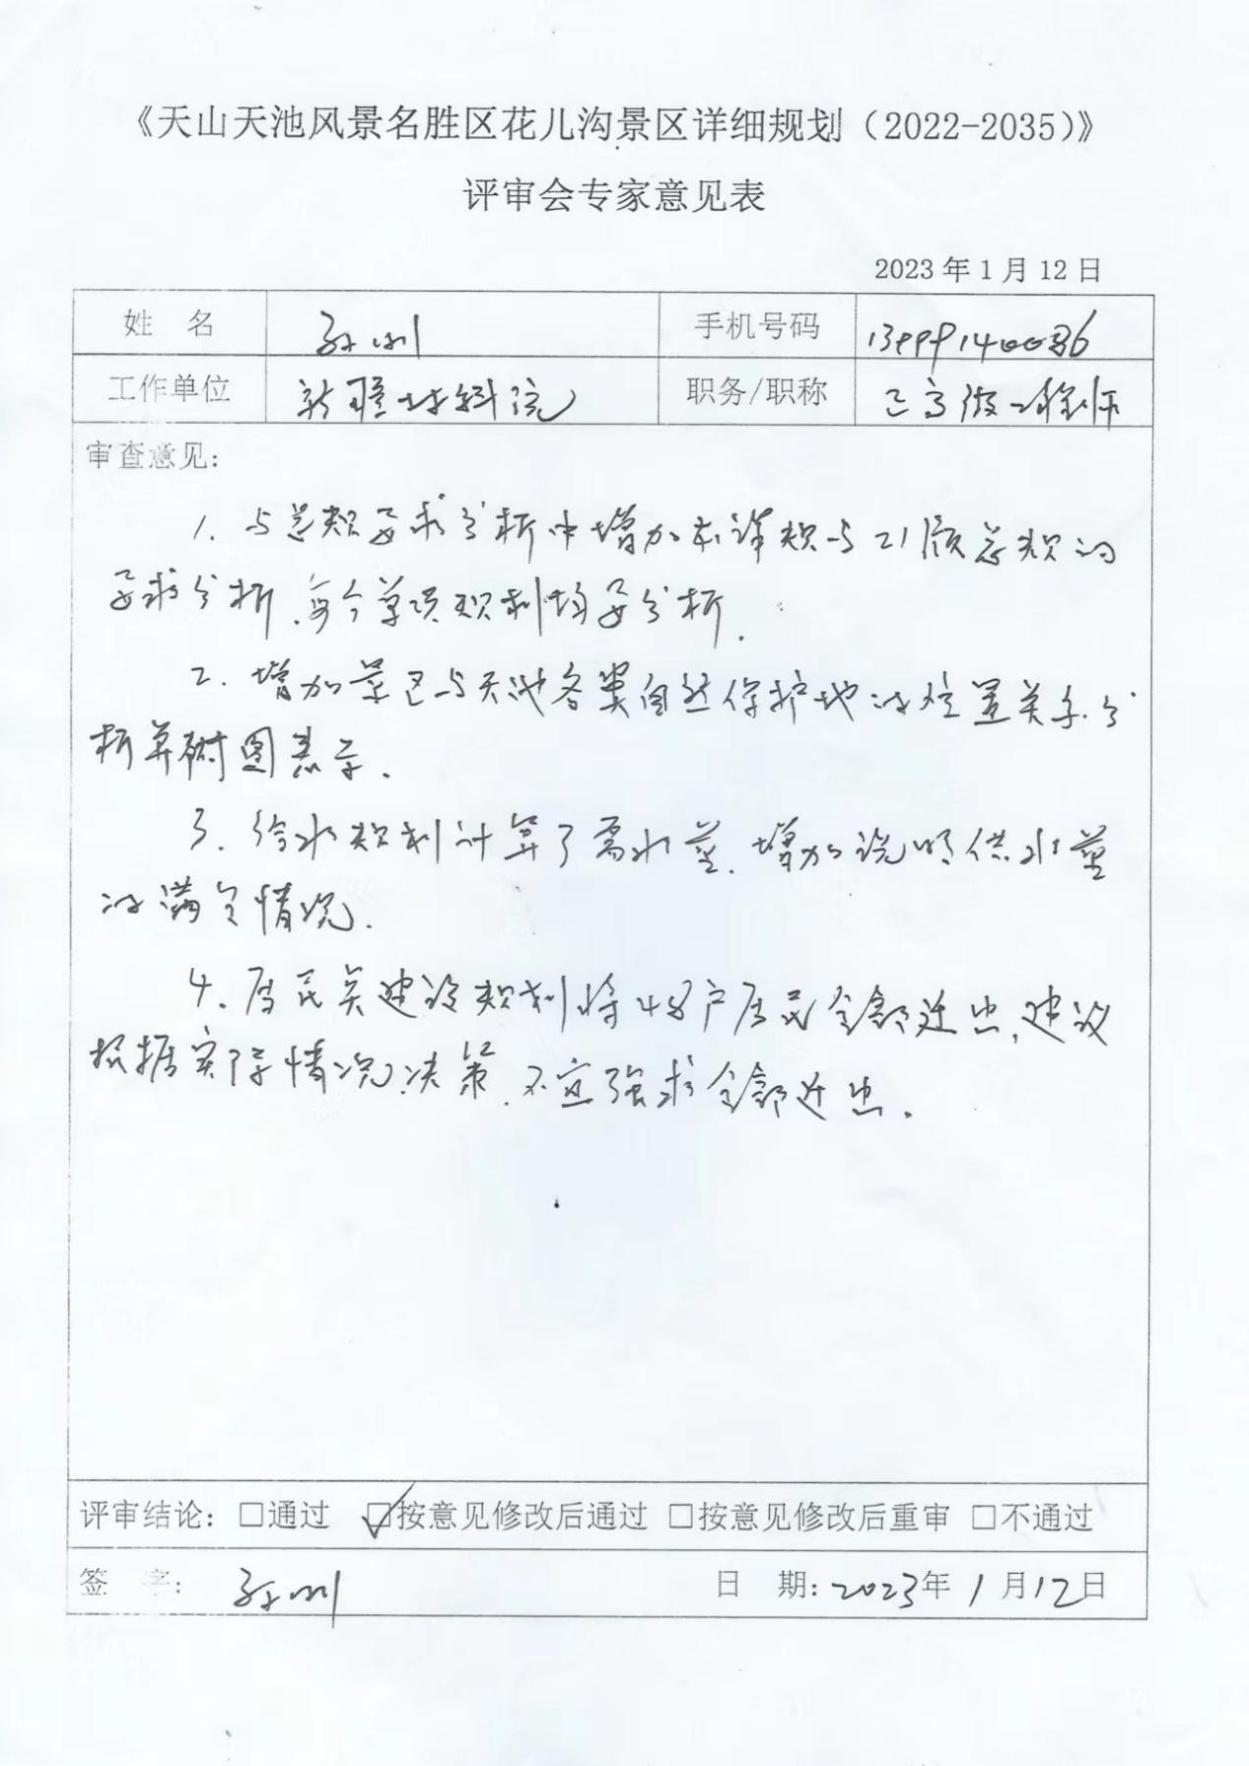 《天山天池风景名胜区花儿沟景区详细规划（2022-2035）》
评审会专家意见表
2023年1月12日
姓 名 手机号码 13999140086
工作单位 新疆林科院 职务/职称 正高级工程师
审查意见：
1. 与总规要求分析中增加本详规与21版总规的
要求分析，每个单项规划均要分析.
2. 增加景区与天池各类自然保护地的位置关系分
析并附图表示.
3. 给水规划计算了需水量，增加说明供水量
的满足情况.
4. 居民点建设规划将48户居民全部迁出，建议
根据实际情况决策，不宜强求全部迁出.
评审结论：□通过 ☑按意见修改后通过 □按意见修改后重审 □不通过
签 字: 日 期:2023年1月12日